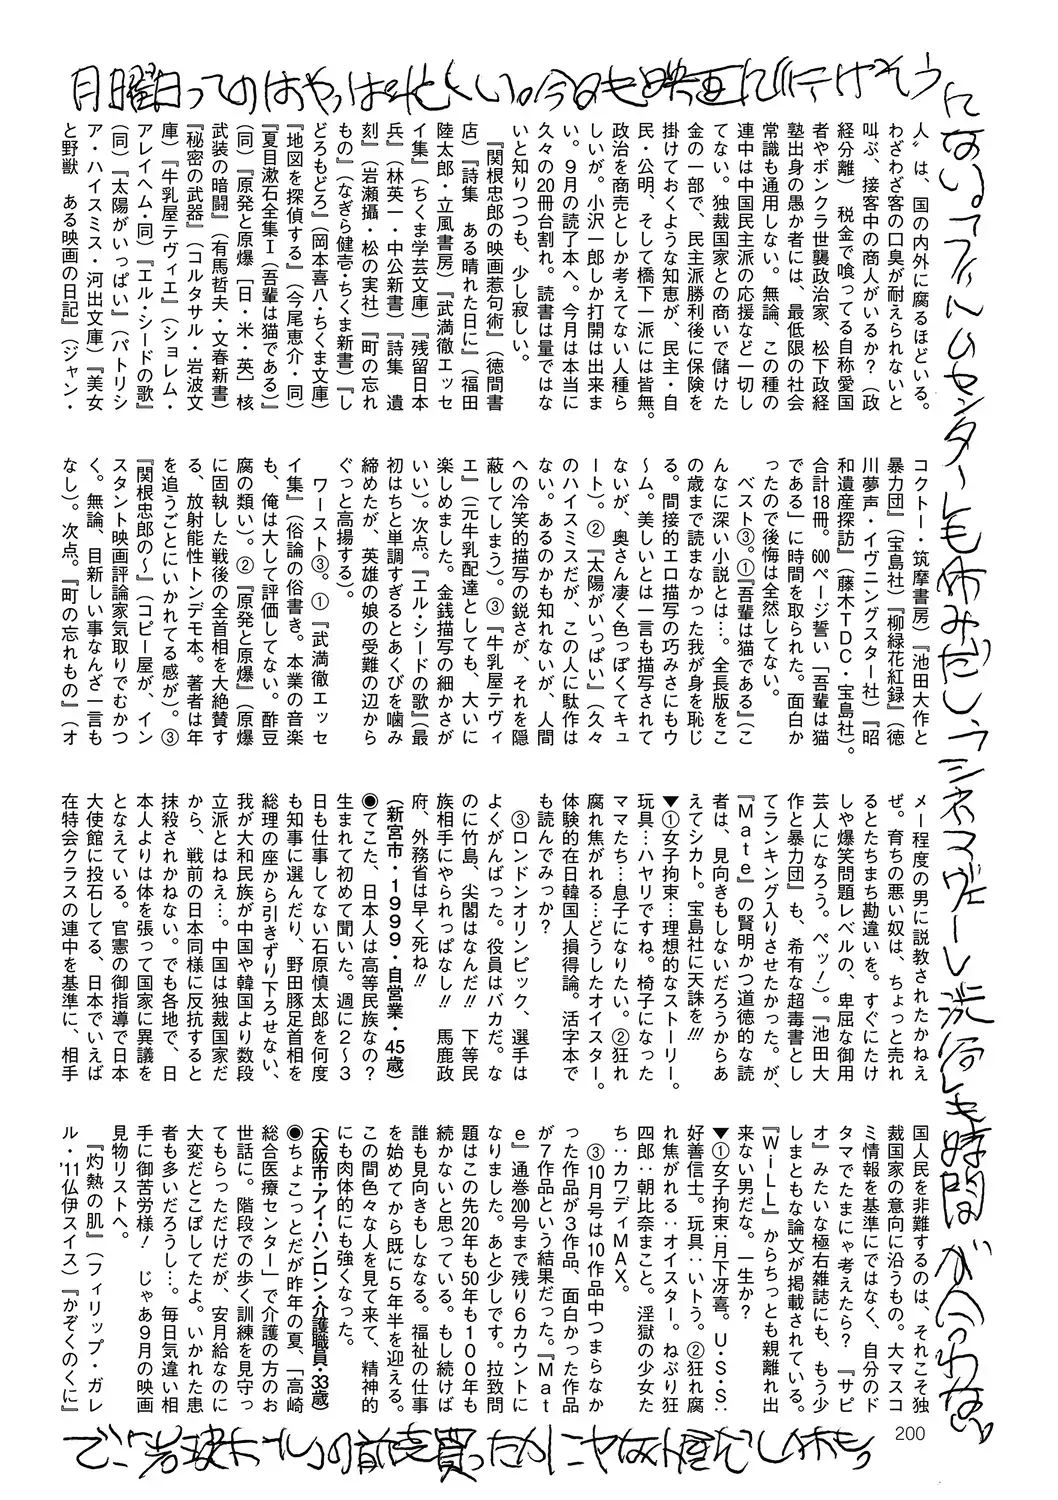 月曜日ってのはやっぱ忙しい。今日も映画に行けそう
にない。フィルムセンターも休みだし、シネマヴェーラ渋谷も時間が合わない
人〟は、国の内外に腐るほどいる。
わざわざ客の口臭が耐えられないと
叫ぶ、接客中の商人がいるか？（政
経分離）　税金で喰ってる自称愛国
者やボンクラ世襲政治家、松下政経
塾出身の愚か者には、最低限の社会
常識も通用しない。無論、この種の
連中は中国民主派の応援など一切し
てない。独裁国家との商いで儲けた
金の一部で、民主派勝利後に保険を
掛けておくような知恵が、民主・自
民・公明、そして橋下一派には皆無。
政治を商売としか考えてない人種ら
しいが。小沢一郎しか打開は出来ま
い。９月の読了本へ。今月は本当に
久々の20冊台割れ。読書は量ではな
いと知りつつも、少し寂しい。
『関根忠郎の映画惹句術』（徳間書
店）『詩集　ある晴れた日に』（福田
陸太郎・立風書房）『武満徹エッセ
イ集』（ちくま学芸文庫）『残留日本
兵』（林英一・中公新書）『詩集　遺
刻』（岩瀬攝・松の実社）『町の忘れ
もの』（なぎら健壱・ちくま新書）『し
どろもどろ』（岡本喜八・ちくま文庫）
『地図を探偵する』（今尾恵介・同）
『夏目漱石全集Ⅰ（吾輩は猫である）』
（同）『原発と原爆［日・米・英］核
武装の暗闘』（有馬哲夫・文春新書）
『秘密の武器』（コルタサル・岩波文
庫）『牛乳屋テヴィエ』（ショレム・
アレイヘム・同）『エル・シードの歌』
（同）『太陽がいっぱい』（パトリシ
ア・ハイスミス・河出文庫）『美女
と野獣　ある映画の日記』（ジャン・
コクトー・筑摩書房）『池田大作と
暴力団』（宝島社）『柳緑花紅録』（徳
川夢声・イヴニングスター社）『昭
和遺産探訪』（藤木ＴＤＣ・宝島社）。
合計18冊。600ページ誓い「吾輩は猫
である」に時間を取られた。面白か
ったので後悔は全然してない。
ベスト③。①『吾輩は猫である』（こ
んなに深い小説とは…。全長版をこ
の歳まで読まなかった我が身を恥じ
る。間接的エロ描写の巧みさにもウ
～ム。美しいとは一言も描写されて
ないが、奥さん凄く色っぽくてキュ
ート）。②『太陽がいっぱい』（久々
のハイスミスだが、この人に駄作は
ない。あるのかも知れないが、人間
への冷笑的描写の鋭さが、それを隠
蔽してしまう）。③『牛乳屋テヴィ
エ』（元牛乳配達としても、大いに
楽しめました。金銭描写の細かさが
いい）。次点。『エル・シードの歌』（最
初はちと単調すぎるとあくびを噛み
締めたが、英雄の娘の受難の辺から
ぐっと高揚する）。
ワースト③。①『武満徹エッセ
イ集』（俗論の俗書き。本業の音楽
も、俺は大して評価してない。酢豆
腐の類い）。②『原発と原爆』（原爆
に固執した戦後の全首相を大絶賛す
る、放射能性トンデモ本。著者は年
を追うごとにいかれてる感が）。③
『関根忠郎の～』（コピー屋が、イン
スタント映画評論家気取りでむかつ
く。無論、目新しい事なんざ一言も
なし）。次点。『町の忘れもの』（オ
メー程度の男に説教されたかねえ
ぜ。育ちの悪い奴は、ちょっと売れ
るとたちまち勘違いを。すぐにたけ
しや爆笑問題レベルの、卑屈な御用
芸人になろう。ペッ！）。『池田大
作と暴力団』も、希有な超毒書とし
てランキング入りさせたかった。が、
『Ｍａｔｅ』の賢明かつ道徳的な読
者は、見向きもしないだろうからあ
えてシカト。宝島社に天誅を!!!
▼①女子拘束…理想的なストーリー。
玩具…ハヤリですね。椅子になった
ママたち…息子になりたい。②狂れ
腐れ焦がれる…どうしたオイスター。
体験的在日韓国人損得論。活字本で
も読んでみっか？
③ロンドンオリンピック、選手は
よくがんばった。役員はバカだ。な
のに竹島、尖閣はなんだ!!　下等民
族相手にやられっぱなし!!　馬鹿政
府、外務省は早く死ね!!
（新宮市・1999・自営業・45歳）
◉てこた、日本人は高等民族なの？
生まれて初めて聞いた。週に２～３
日も仕事してない石原慎太郎を何度
も知事に選んだり、野田豚足首相を
総理の座から引きずり下ろせない、
我が大和民族が中国や韓国より数段
立派とはねえ…。中国は独裁国家だ
から、戦前の日本同様に反抗すると
抹殺されかねない。でも各地で、日
本人よりは体を張って国家に異議を
となえている。官憲の御指導で日本
大使館に投石してる、日本でいえば
在特会クラスの連中を基準に、相手
国人民を非難するのは、それこそ独
裁国家の意向に沿うもの。大マスコ
ミ情報を基準にではなく、自分のド
タマでたまにゃ考えたら？『サピ
オ』みたいな極右雑誌にも、もう少
しまともな論文が掲載されている。
『ＷｉＬＬ』からちっとも親離れ出
来ない男だな。一生か？
▼①女子拘束：月下冴喜。Ｕ・Ｓ・Ｓ：
好善信士。玩具：いトう。②狂れ腐
れ焦がれる：オイスター。ねぶり狂
四郎：朝比奈まこと。淫獄の少女た
ち：カワディＭＡＸ。
③10月号は10作品中つまらなか
った作品が３作品、面白かった作品
が７作品という結果だった。『Ｍａｔ
ｅ』通巻200号まで残り６カウントに
なりました。あと少しです。拉致問
題はこの先20年も50年も１００年も
続かないと思っている。もし続けば
誰も見向きもしなくなる。福祉の仕事
を始めてから既に５年半を迎える。
この間色々な人を見て来て、精神的
にも肉体的にも強くなった。
（大阪市・アイ・ハンロン・介護職員・33歳）
◉ちょこっとだが昨年の夏、「高崎
総合医療センター」で介護の方のお
世話に。階段での歩く訓練を見守っ
てもらっただけだが、安月給なのに
大変だとこぼしてたよ。いかれた患
者も多いだろうし…。毎日気違い相
手に御苦労様！　じゃあ９月の映画
見物リストへ。
『灼熱の肌』（フィリップ・ガレ
ル・'11仏伊スイス）『かぞくのくに』
200